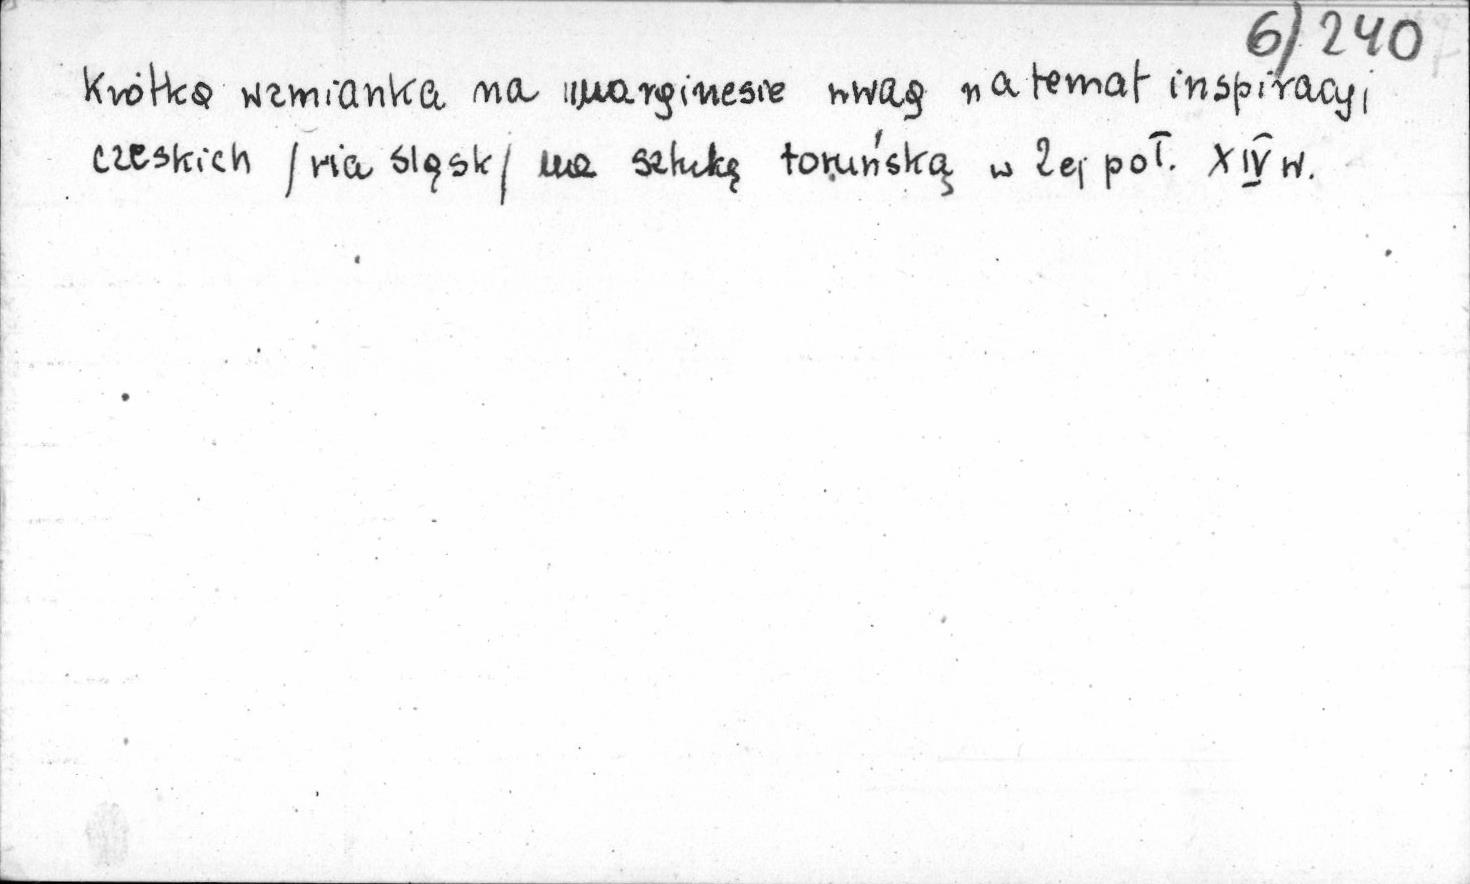 6/240
Krótka wzmianka na marginesie uwag na temat inspiracji
czeskich /via Śląsk/ na sztukę toruńską w 2ej poł. XIV w.